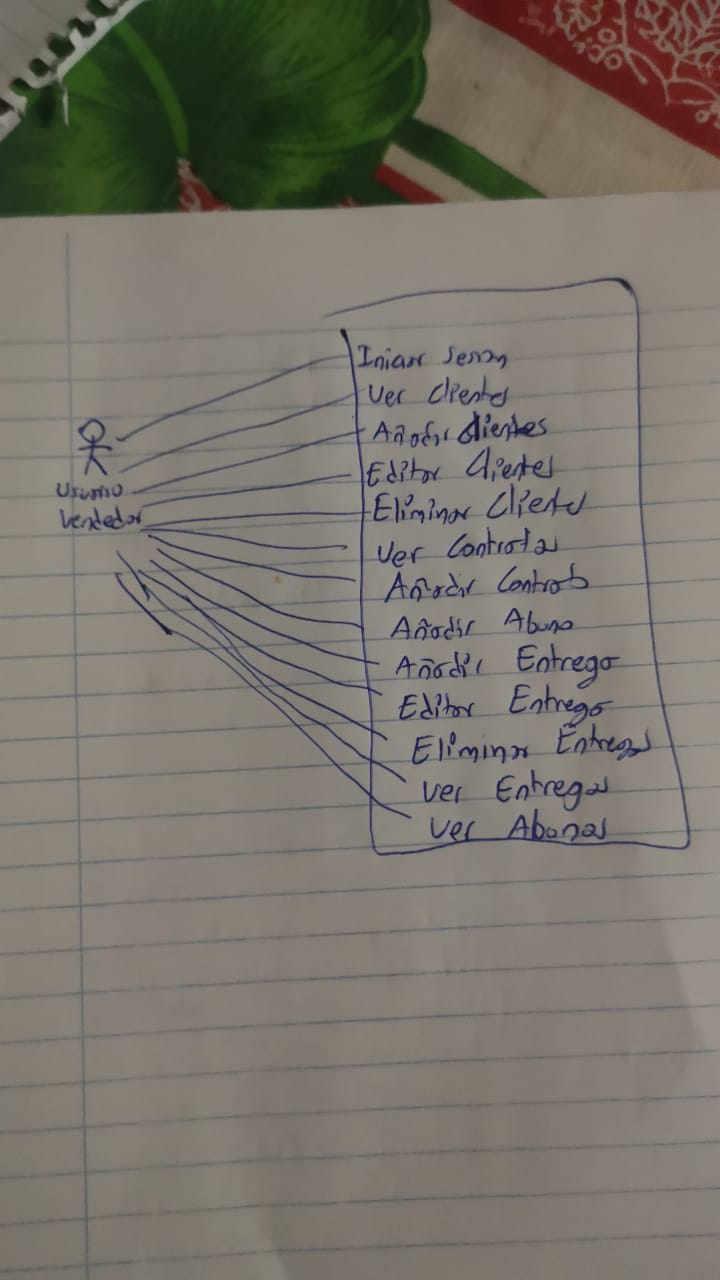 Usuario
Vendedor
Iniciar sesion
Ver Clientes
Añadir Clientes
Editar Clientes
Eliminar Clientes
Ver Contratos
Añadir Contrato
Añadir Abono
Añadir Entrega
Editar Entrega
Eliminar Entregas
Ver Entregas
Ver Abonos